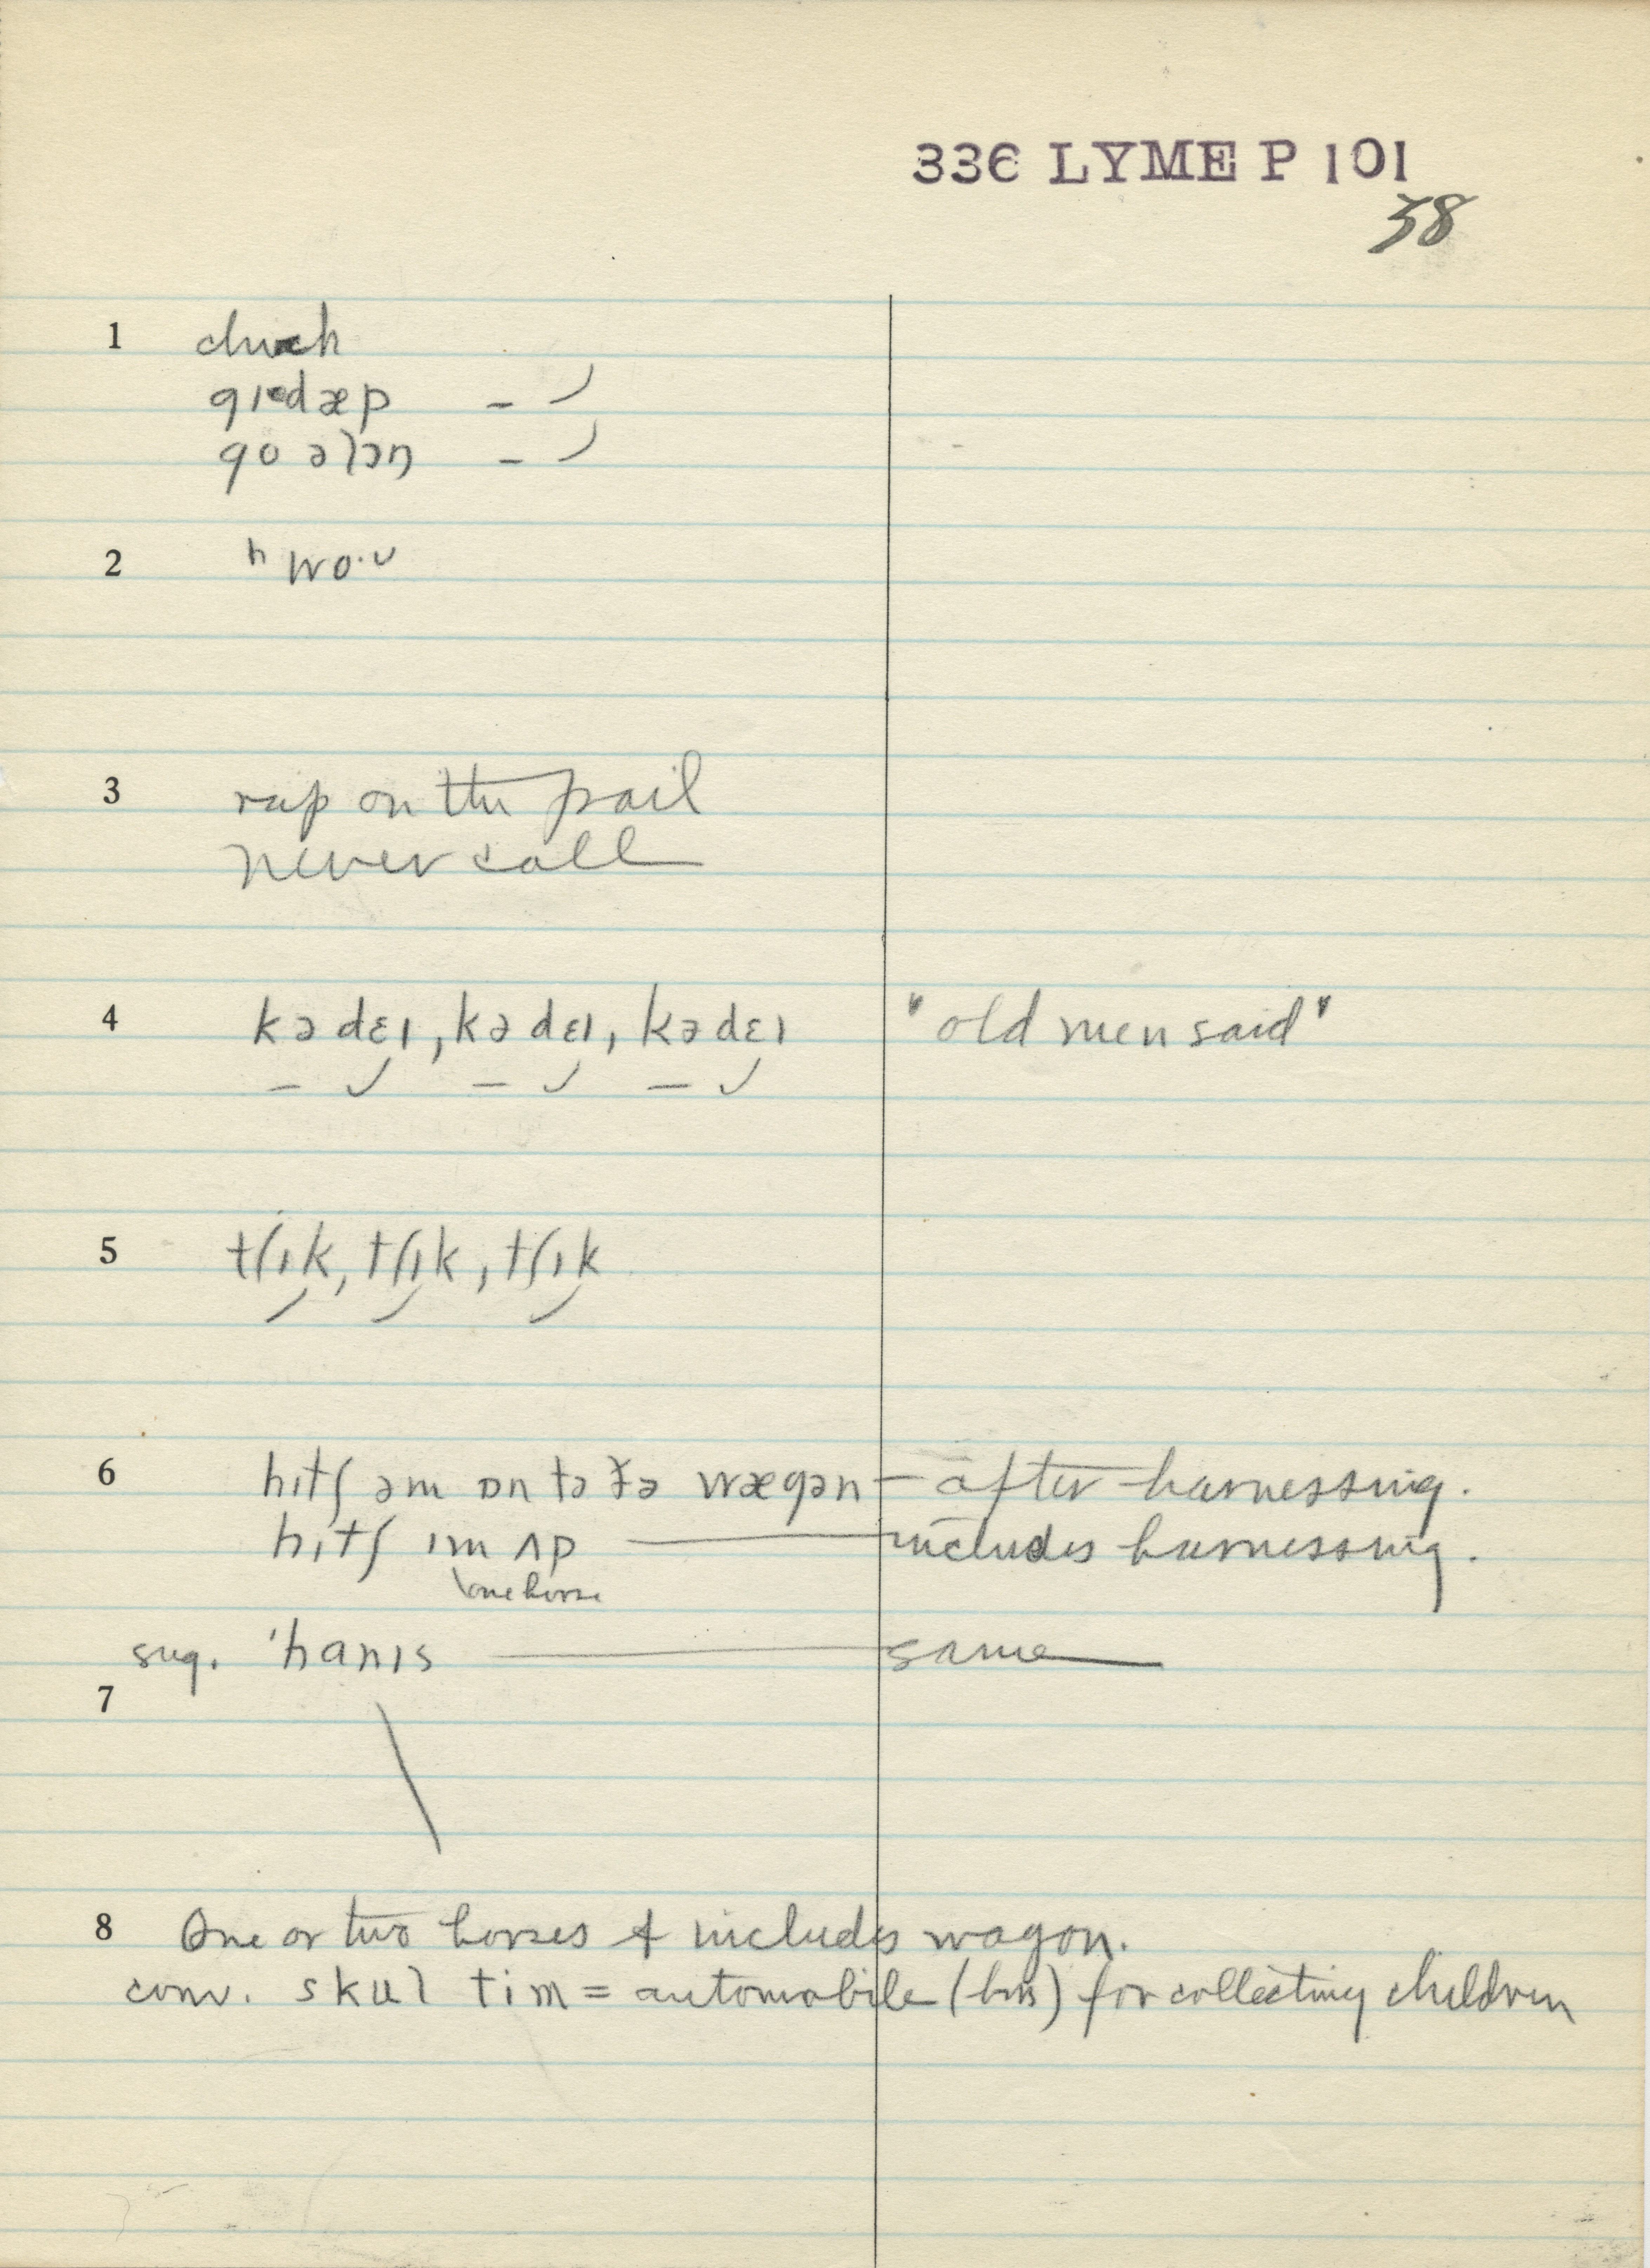 336 LYME P 101
38
1 cluck
gɪdæp – ⌣
go əlɔŋ – ⌣
2 ʰwo·ᴜ
3 rap on the pail
never call
4 kədɛɪ, kədɛɪ, kədɛɪ "old men said"
5 tʃɪk, tʃɪk, tʃɪk
6 hɪtʃ əm ɒn tə ðə wægən – after harnessing.
hɪtʃ ɪm ʌp — includes harnessing.
one horse
sug. 'hanɪs — same
7
8 One or two horses & includes wagon.
conv. skul tim = automobile (bus) for collecting children